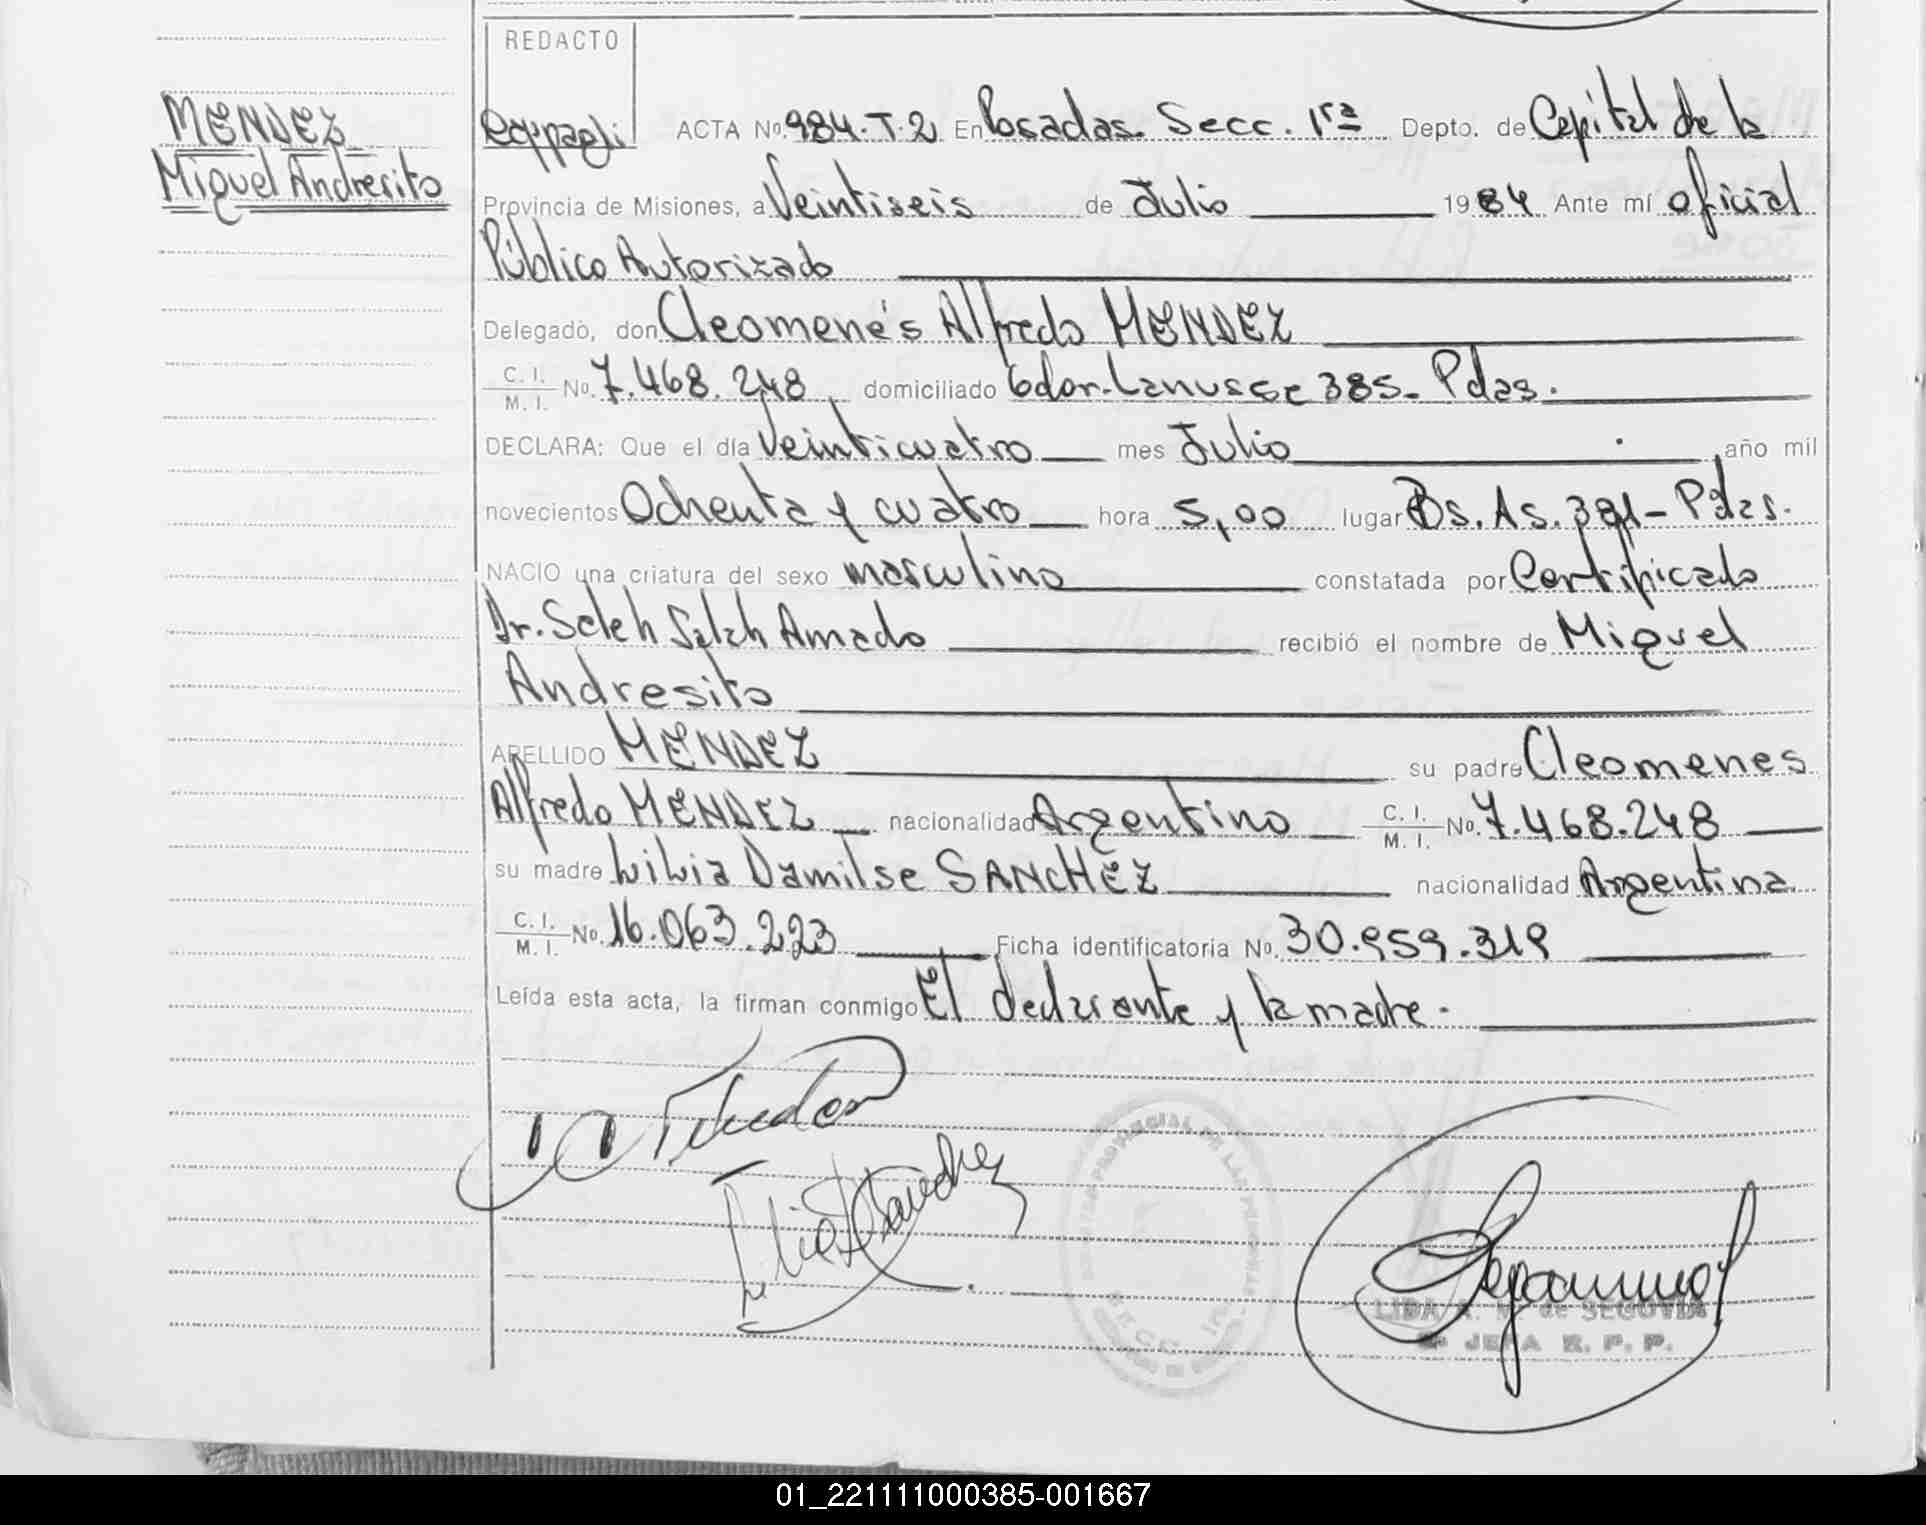 REDACTO
MENDEZ
Miguel Andresito
ACTA Nº 984.T.2 En Posadas. Secc. 1ra Depto. de Capital de la
Provincia de Misiones, a Veintiseis de Julio 1984 Ante mí oficial
Público Autorizado
Delegado, don Cleomenés Alfredo MENDEZ
C. I.
M. I. No. 7.468.248 domiciliado Gdor. Lanusse 385- Pdas.
DECLARA: Que el día Veinticuatro mes Julio año mil
novecientos Ochenta y cuatro hora 5,00 lugar Bs. As. 391- Pdas.
NACIO una criatura del sexo masculino constatada por Certificado
Dr. Saleh Salah Amado recibió el nombre de Miguel
Andresito
APELLIDO MENDEZ su padre Cleomenes
Alfredo MENDEZ nacionalidad Argentino C. I.
M. I. No. 7.468.248
su madre Lilia Damilse SANCHEZ nacionalidad Argentina
C. I.
M. I. No. 16.063.223 Ficha identificatoria No. 30.959.319
Leída esta acta, la firman conmigo El declarante y la madre.
LIDA A. de SEGOVIA
JEFA R. P. P.
01_221111000385-001667